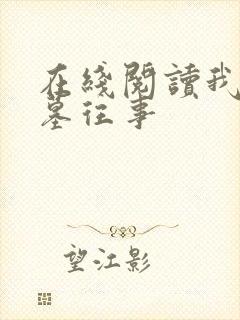 在綫閱讀我
墓往事
望江影